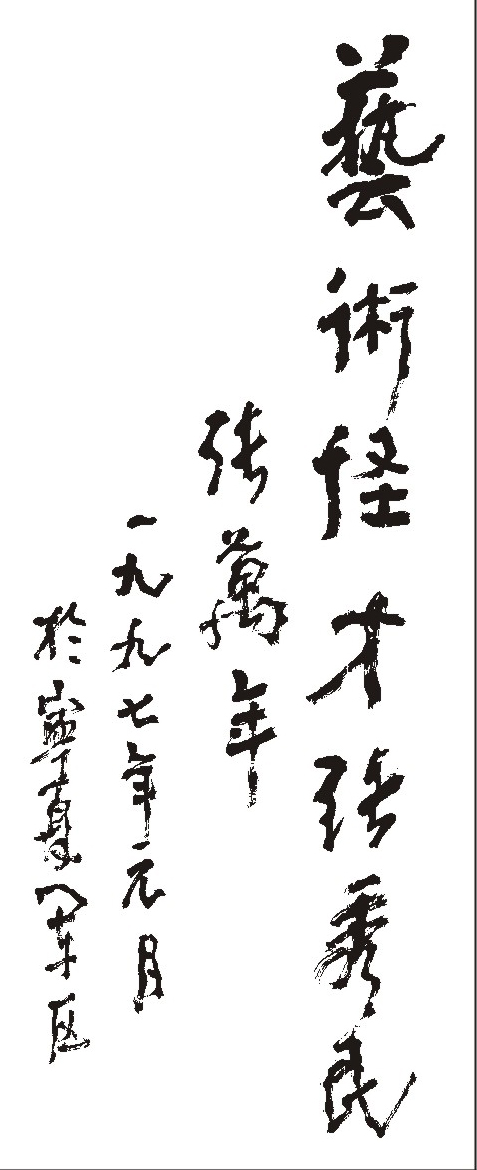 藝術怪才張秀民
張萬年
一九九七年元月
於寧夏軍区